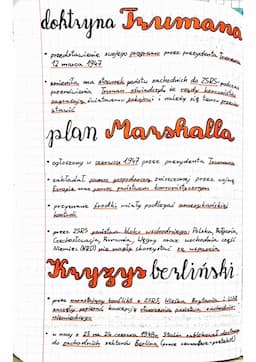 doktryna Trumana
• przedstawienie swojego programu przez prezydenta Trumana
12 marca 1947
• zmieniła ona stosunek państw zachodnich do ZSRS, podczas
przemówienia Truman oświadczył, że rządy komunistów
zagrażają światowemu pokojowi i należy się temu przeciw
stawić
plan Marshalla
• ogłoszony w czerwcu 1947 przez prezydenta Trumana
• zakładał pomoc gospodarczą zniszczonej przez wojnę
Europie oraz pomoc państwom komunistycznym
• przyznawane środki miały podlegać amerykańskiej
kontroli
• przez ZSRS państwa bloku wschodniego: Polska, Bułgaria,
Czechosłowacja, Rumunia, Węgry oraz wschodnia część
Niemiec (NRD) nie mogły skorzystać ze wsparcia
Kryzys berliński
• przez narastający konflikt z ZSRS, Wielka Brytania i USA
zaczęły popierać koncepcję stworzenia państwa zachodnio
niemieckiego
• w nocy z 23 na 24 czerwca 1948r. Stalin zablokował dostawy
do zachodnich sektorów Berlina